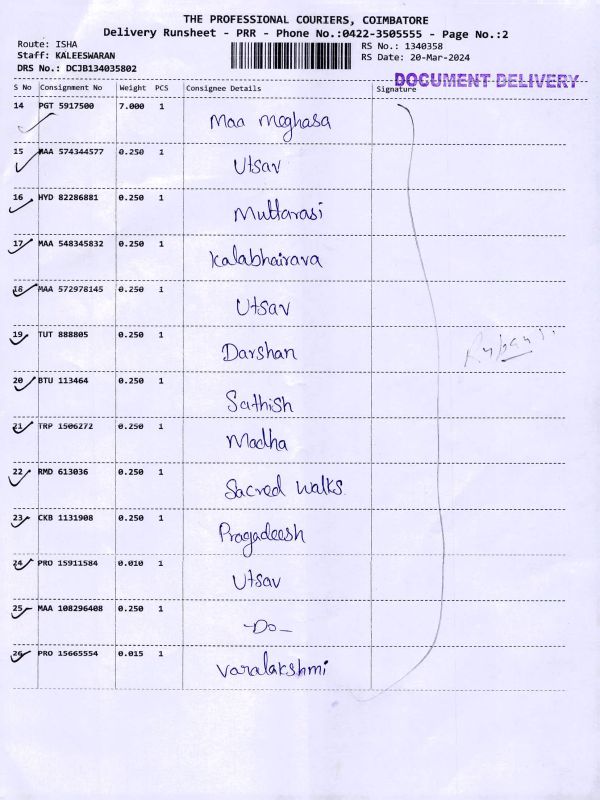 THE PROFESSIONAL COURIERS, COIMBATORE
Delivery Runsheet - PRR - Phone No.:0422-3505555 - Page No.:2
Route: ISHA
Staff: KALEESWARAN
DRS No.: DCJB134035802
RS No.: 1340358
RS Date: 20-Mar-2024
DOCUMENT DELIVERY
S No Consignment No Weight PCS Consignee Details Signature
14 PGT 5917500 7.000 1 Maa Meghasa
15 MAA 574344577 0.250 1 Utsav
16 HYD 82286881 0.250 1 Muttarasi
17 MAA 548345832 0.250 1 Kalabhairava
18 MAA 572978145 0.250 1 Utsav
19 TUT 888805 0.250 1 Darshan
20 BTU 113464 0.250 1 Sathish
21 TRP 1506272 0.250 1 Madha
22 RMD 613036 0.250 1 Sacred walks
23 CKB 1131908 0.250 1 Pragadeesh
24 PRO 15911584 0.010 1 Utsav
25 MAA 108296408 0.250 1 -Do-
26 PRO 15665554 0.015 1 Varalakshmi